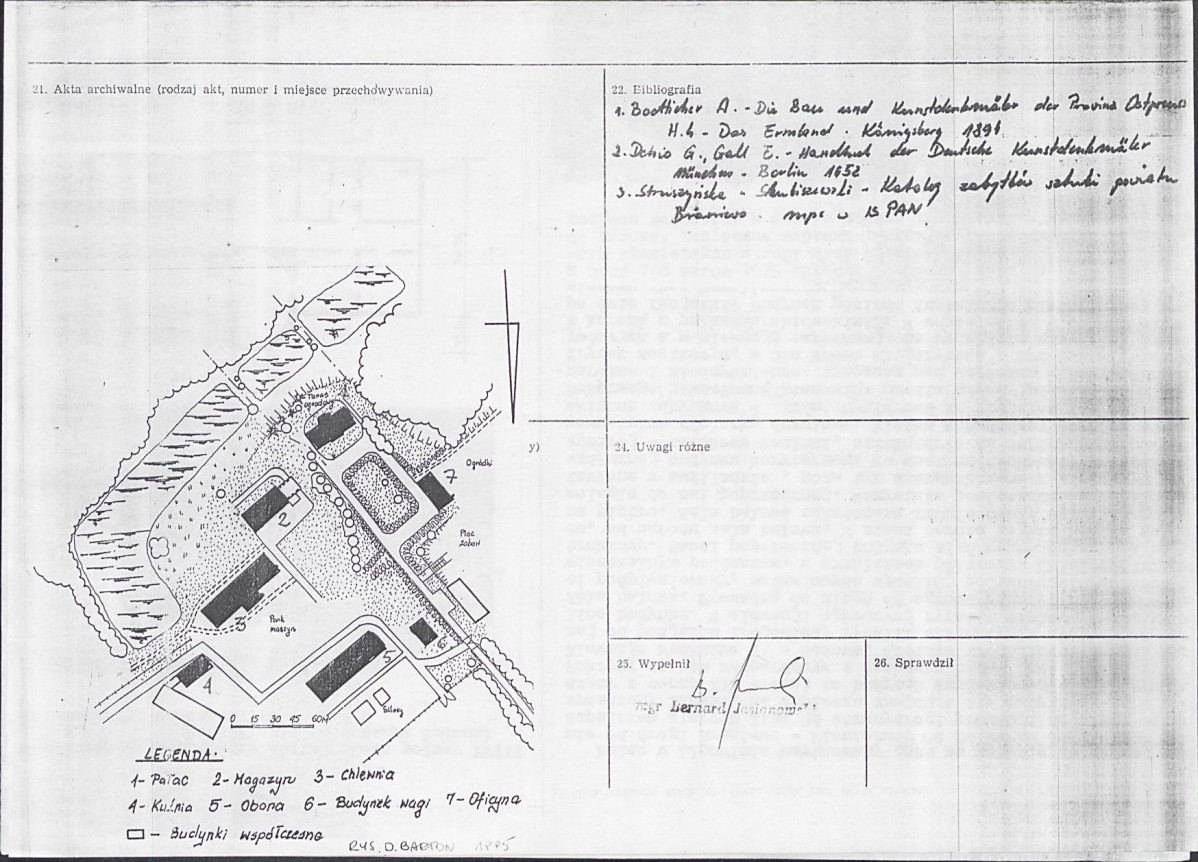 21. Akta archiwalne (rodzaj akt, numer i miejsce przechowywania)
22. Bibliografia
1. Boetticher A. - Die Bau und Kunstdenkmäler der Provinz Ostpreus
H.4 - Das Ermland. Königsberg 1894
2. Dehio G., Gall E. - Handbuch der Deutsche Kunstdenkmäler
München - Berlin 1652
3. Struszyńska - Skubiszewski - Katalog zabytków sztuki powiatu
Braniewo mps w IS PAN
y)
24. Uwagi różne
25. Wypełnił
mgr Bernard
26. Sprawdził
Taras
ogrodowy
1
Ogródki
7
2
Plac
zabaw
3
Park
maszyn
6
5
4
Silosy
0 15 30 45 60M
LEGENDA:
1- Pałac 2- Magazyn 3- Chlewnia
4- Kuźnia 5- Obora 6- Budynek wagi 7- Oficyna
- Budynki współczesne
RYS. D. BARTON 1995